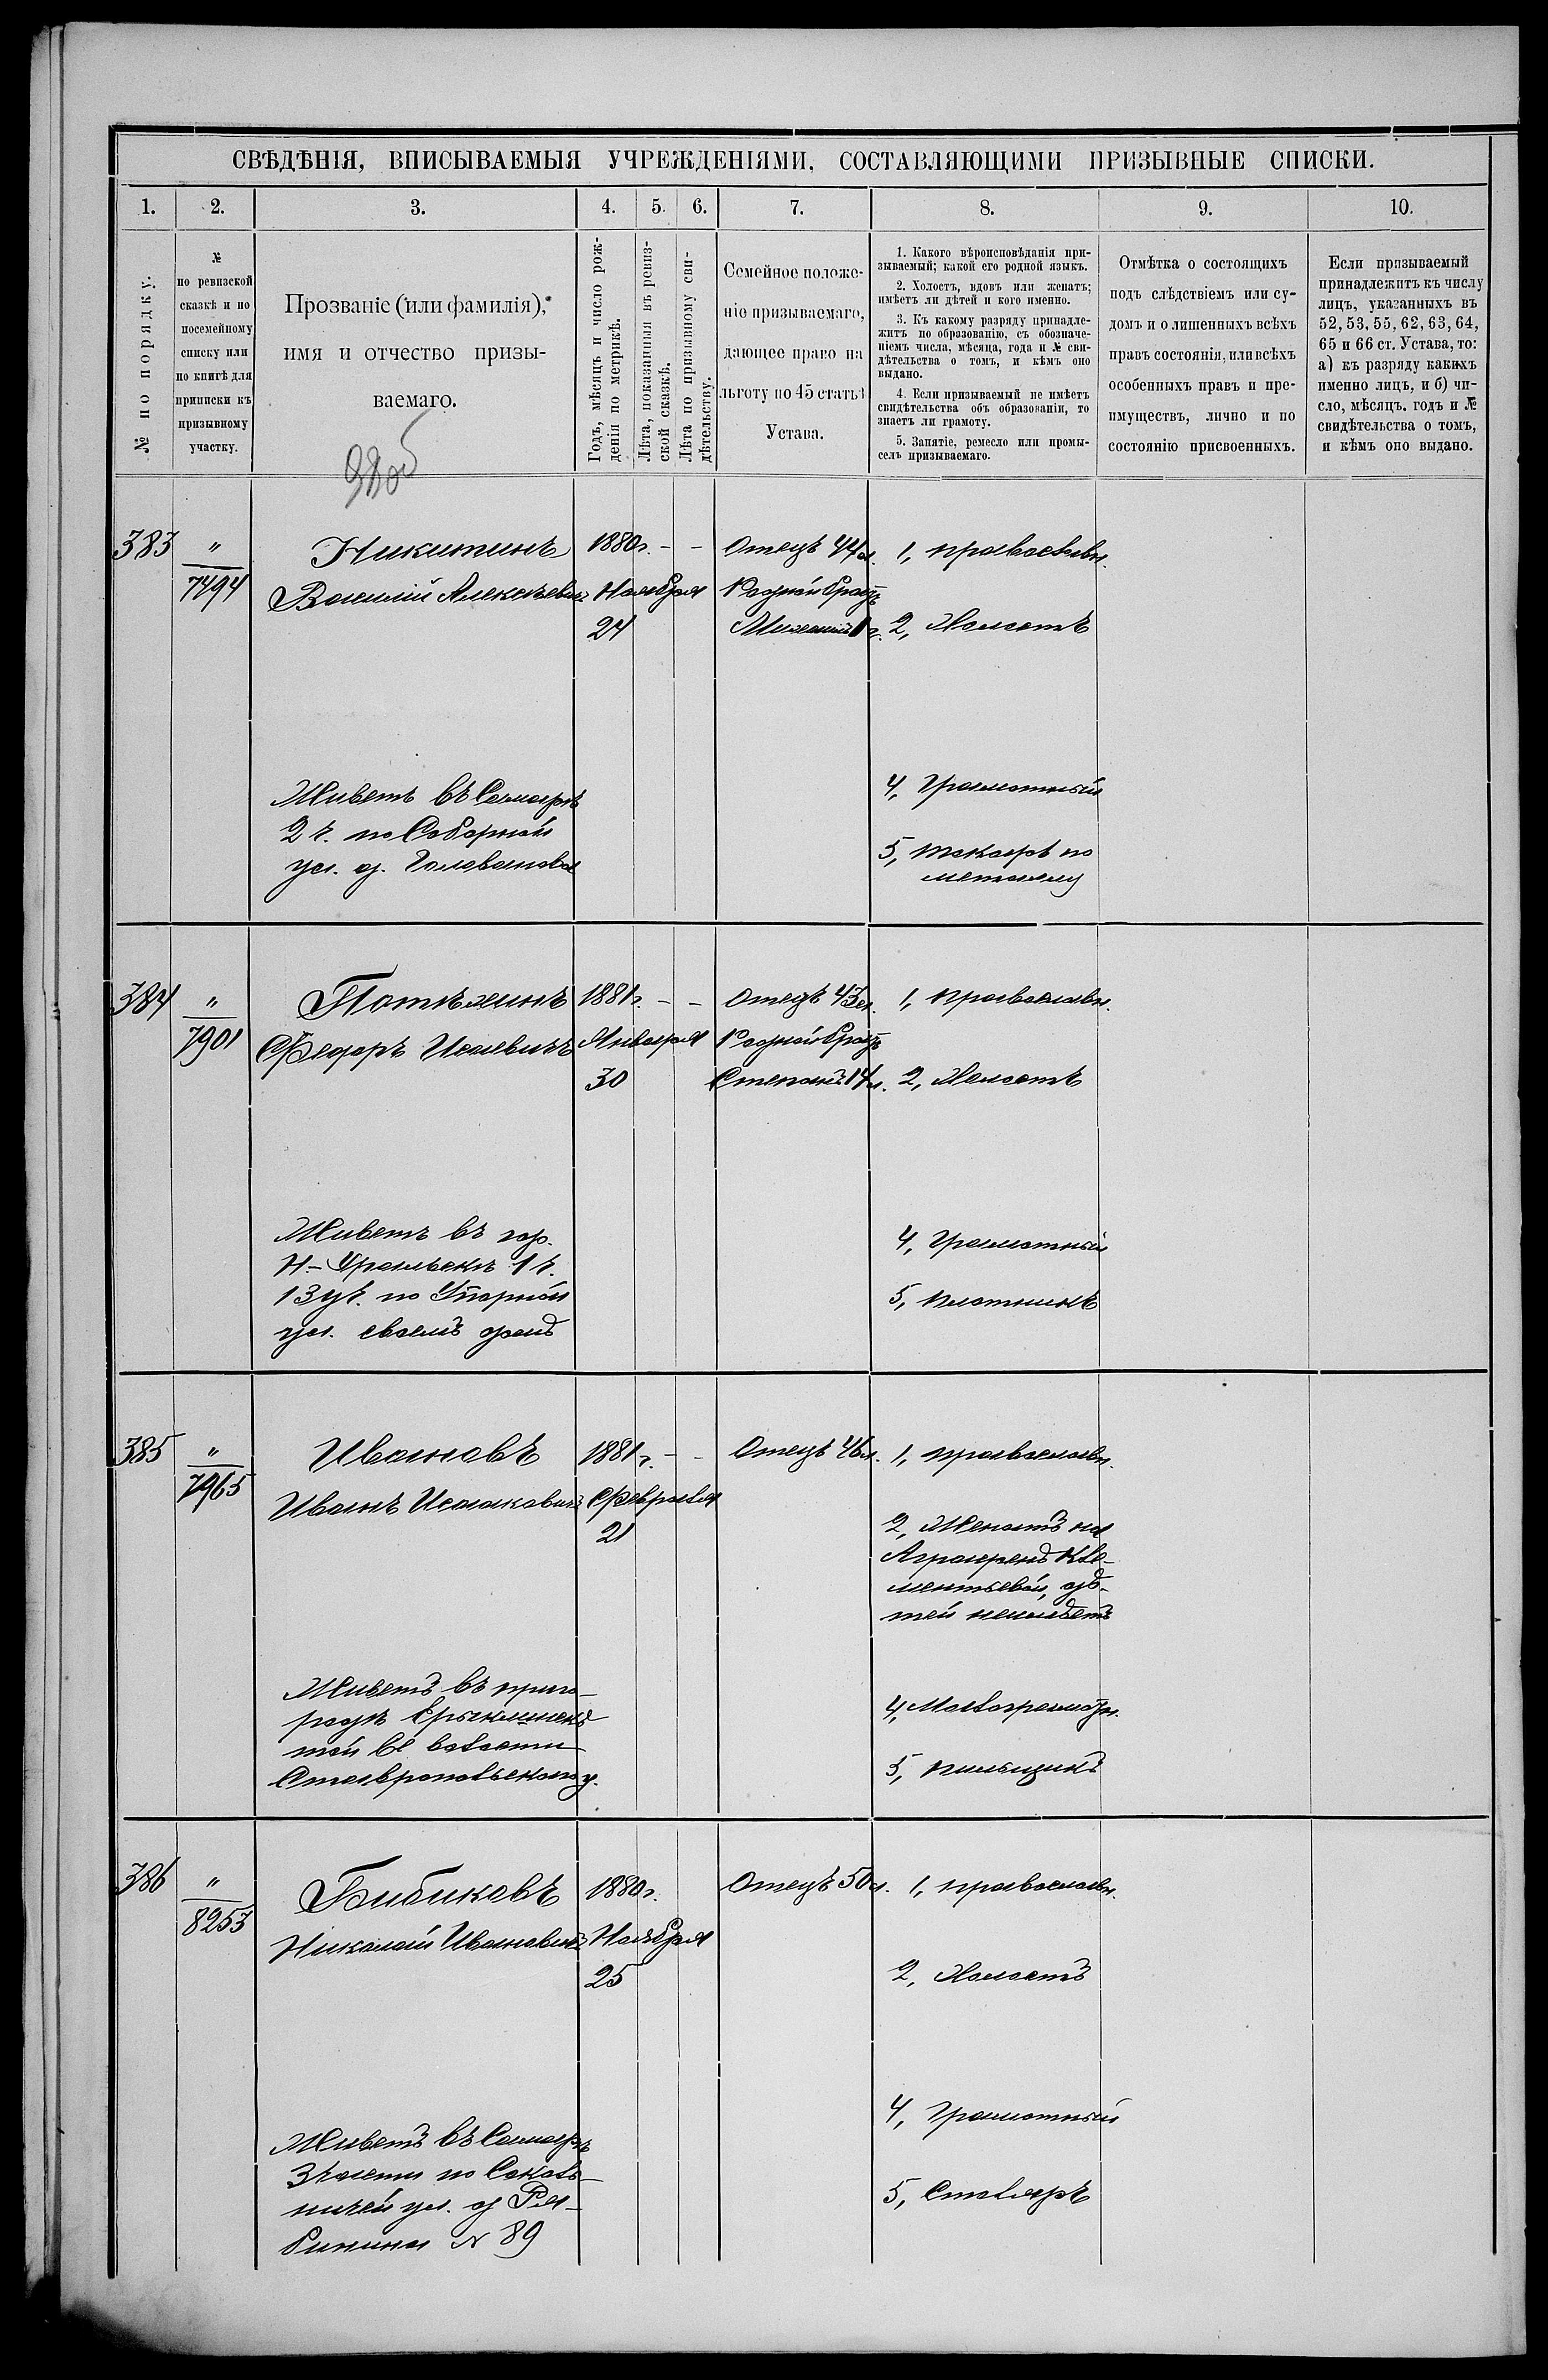 СВѢДѢНІЯ, ВПИСЫВАЕМЫЯ УЧРЕЖДЕНІЯМИ, СОСТАВЛЯЮЩИМИ ПРИЗЫВНЫЕ СПИСКИ.
1. 2. 3. 4. 5. 6. 7. 8. 9. 10.
№ по порядку.
№
по ревизской
сказкѣ и по
посемейному
списку или
по книгѣ для
приписки къ
призывному
участку.
Прозваніе (или фамилія),
имя и отчество призы-
ваемаго.
Годъ, мѣсяцъ и число рож-
денія по метрикѣ.
Лѣта, показанныя въ ревиз-
ской сказкѣ.
Лѣта по призывному сви-
дѣтельству.
Семейное положе-
ніе призываемаго,
дающее право на
льготу по 45 статьѣ
Устава.
1. Какого вѣроисповѣданія при-
зываемый; какой его родной языкъ.
2. Холостъ, вдовъ или женатъ;
имѣетъ ли дѣтей и кого именно.
3. Къ какому разряду принадле-
житъ по образованію, съ обозначе-
ніемъ числа, мѣсяца, года и № сви-
дѣтельства о томъ, и кѣмъ оно
выдано.
4. Если призываемый не имѣетъ
свидѣтельства объ образованіи, то
знаетъ ли грамоту.
5. Занятіе, ремесло или промы-
селъ призываемаго.
Отмѣтка о состоящихъ
подъ слѣдствіемъ или су-
домъ и о лишенныхъ всѣхъ
правъ состоянія, или всѣхъ
особенныхъ правъ и пре-
имуществъ, лично и по
состоянію присвоенныхъ.
Если призываемый
принадлежитъ къ числу
лицъ, указанныхъ въ
52, 53, 55, 62, 63, 64,
65 и 66 ст. Устава, то:
а) къ разряду какихъ
именно лицъ, и б) чи-
сло, мѣсяцъ, годъ и №
свидѣтельства о томъ,
и кѣмъ оно выдано.
383 " Никитинъ 1880г. - - Отецъ 44л. 1, православн.
7494 Василий Алексѣевичъ Ноября Родной братъ
24 2, Холостъ
Живетъ въ Самарѣ
2 ч. по Соборной
ул. д. Голованова
4, Грамотный
5, токарь по
металлу
384 " Потѣхинъ 1881г. - - Отецъ 43л. 1, православн.
7901 Федоръ Исаевичъ Января Родной братъ
30 Степанъ 14л. 2, Холостъ
Живетъ въ гор.
Н-Уральскѣ 1 ч.
13 уч. по
ул. своемъ домѣ
4, Грамотный
5, плотникъ
385 " Ивановъ 1881г. - - Отецъ 46л. 1, православн.
7965 Иванъ Исааковичъ Февраля
21
2, Женатъ на
Аграфенѣ Кле-
ментьевой, дѣ-
тей неимѣетъ
Живетъ въ приго-
родѣ Ерыклинск-
той же волости
Ставропольскаго у.
4, Малограмотн.
5, пильщикъ
386 " Бибиковъ 1880г. Отецъ 50л. 1, православн.
8253 Николай Ивановичъ Ноября
25 2, Холостъ
Живетъ въ Самарѣ
3 части по Соколь-
ничей ул. д Ря-
бинина № 89
4, Грамотный
5, Столяръ